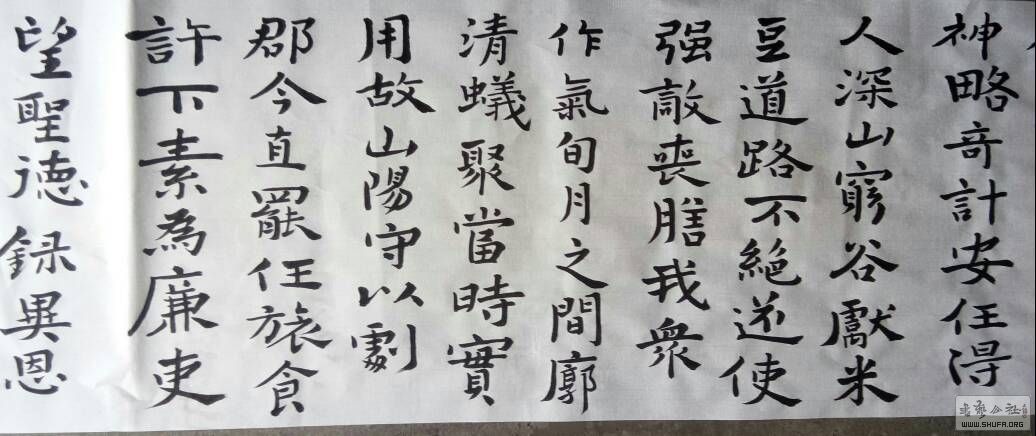 神略奇計安任得
人深山窮谷獻米
豆道路不絕逆使
强敵喪膳我衆
作氣旬月之間廓
清蟻聚當時實
用故山陽守以劇
郡今直罷任旅食
許下素為廉吏
望聖德録異恩
书艺公社
WWW.SHUFA.ORG